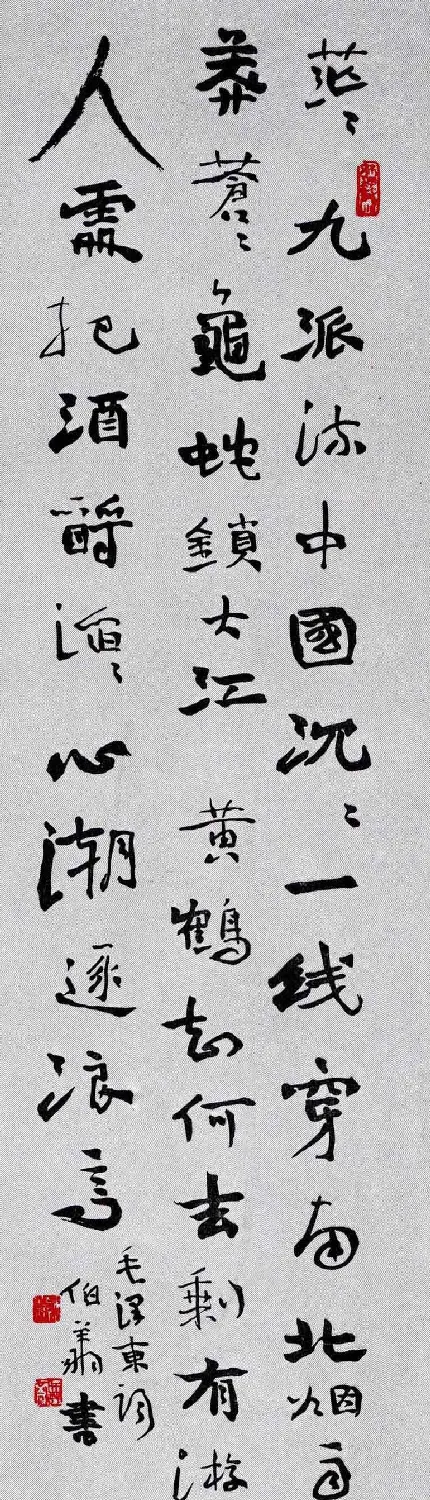 茫〻九派流中國沉〻一线穿南北烟雨
莽蒼〻龜蛇鎖大江黄鶴知何去剩有游
人處把酒酹滔〻心潮逐浪高
毛澤東詞
伯翔書